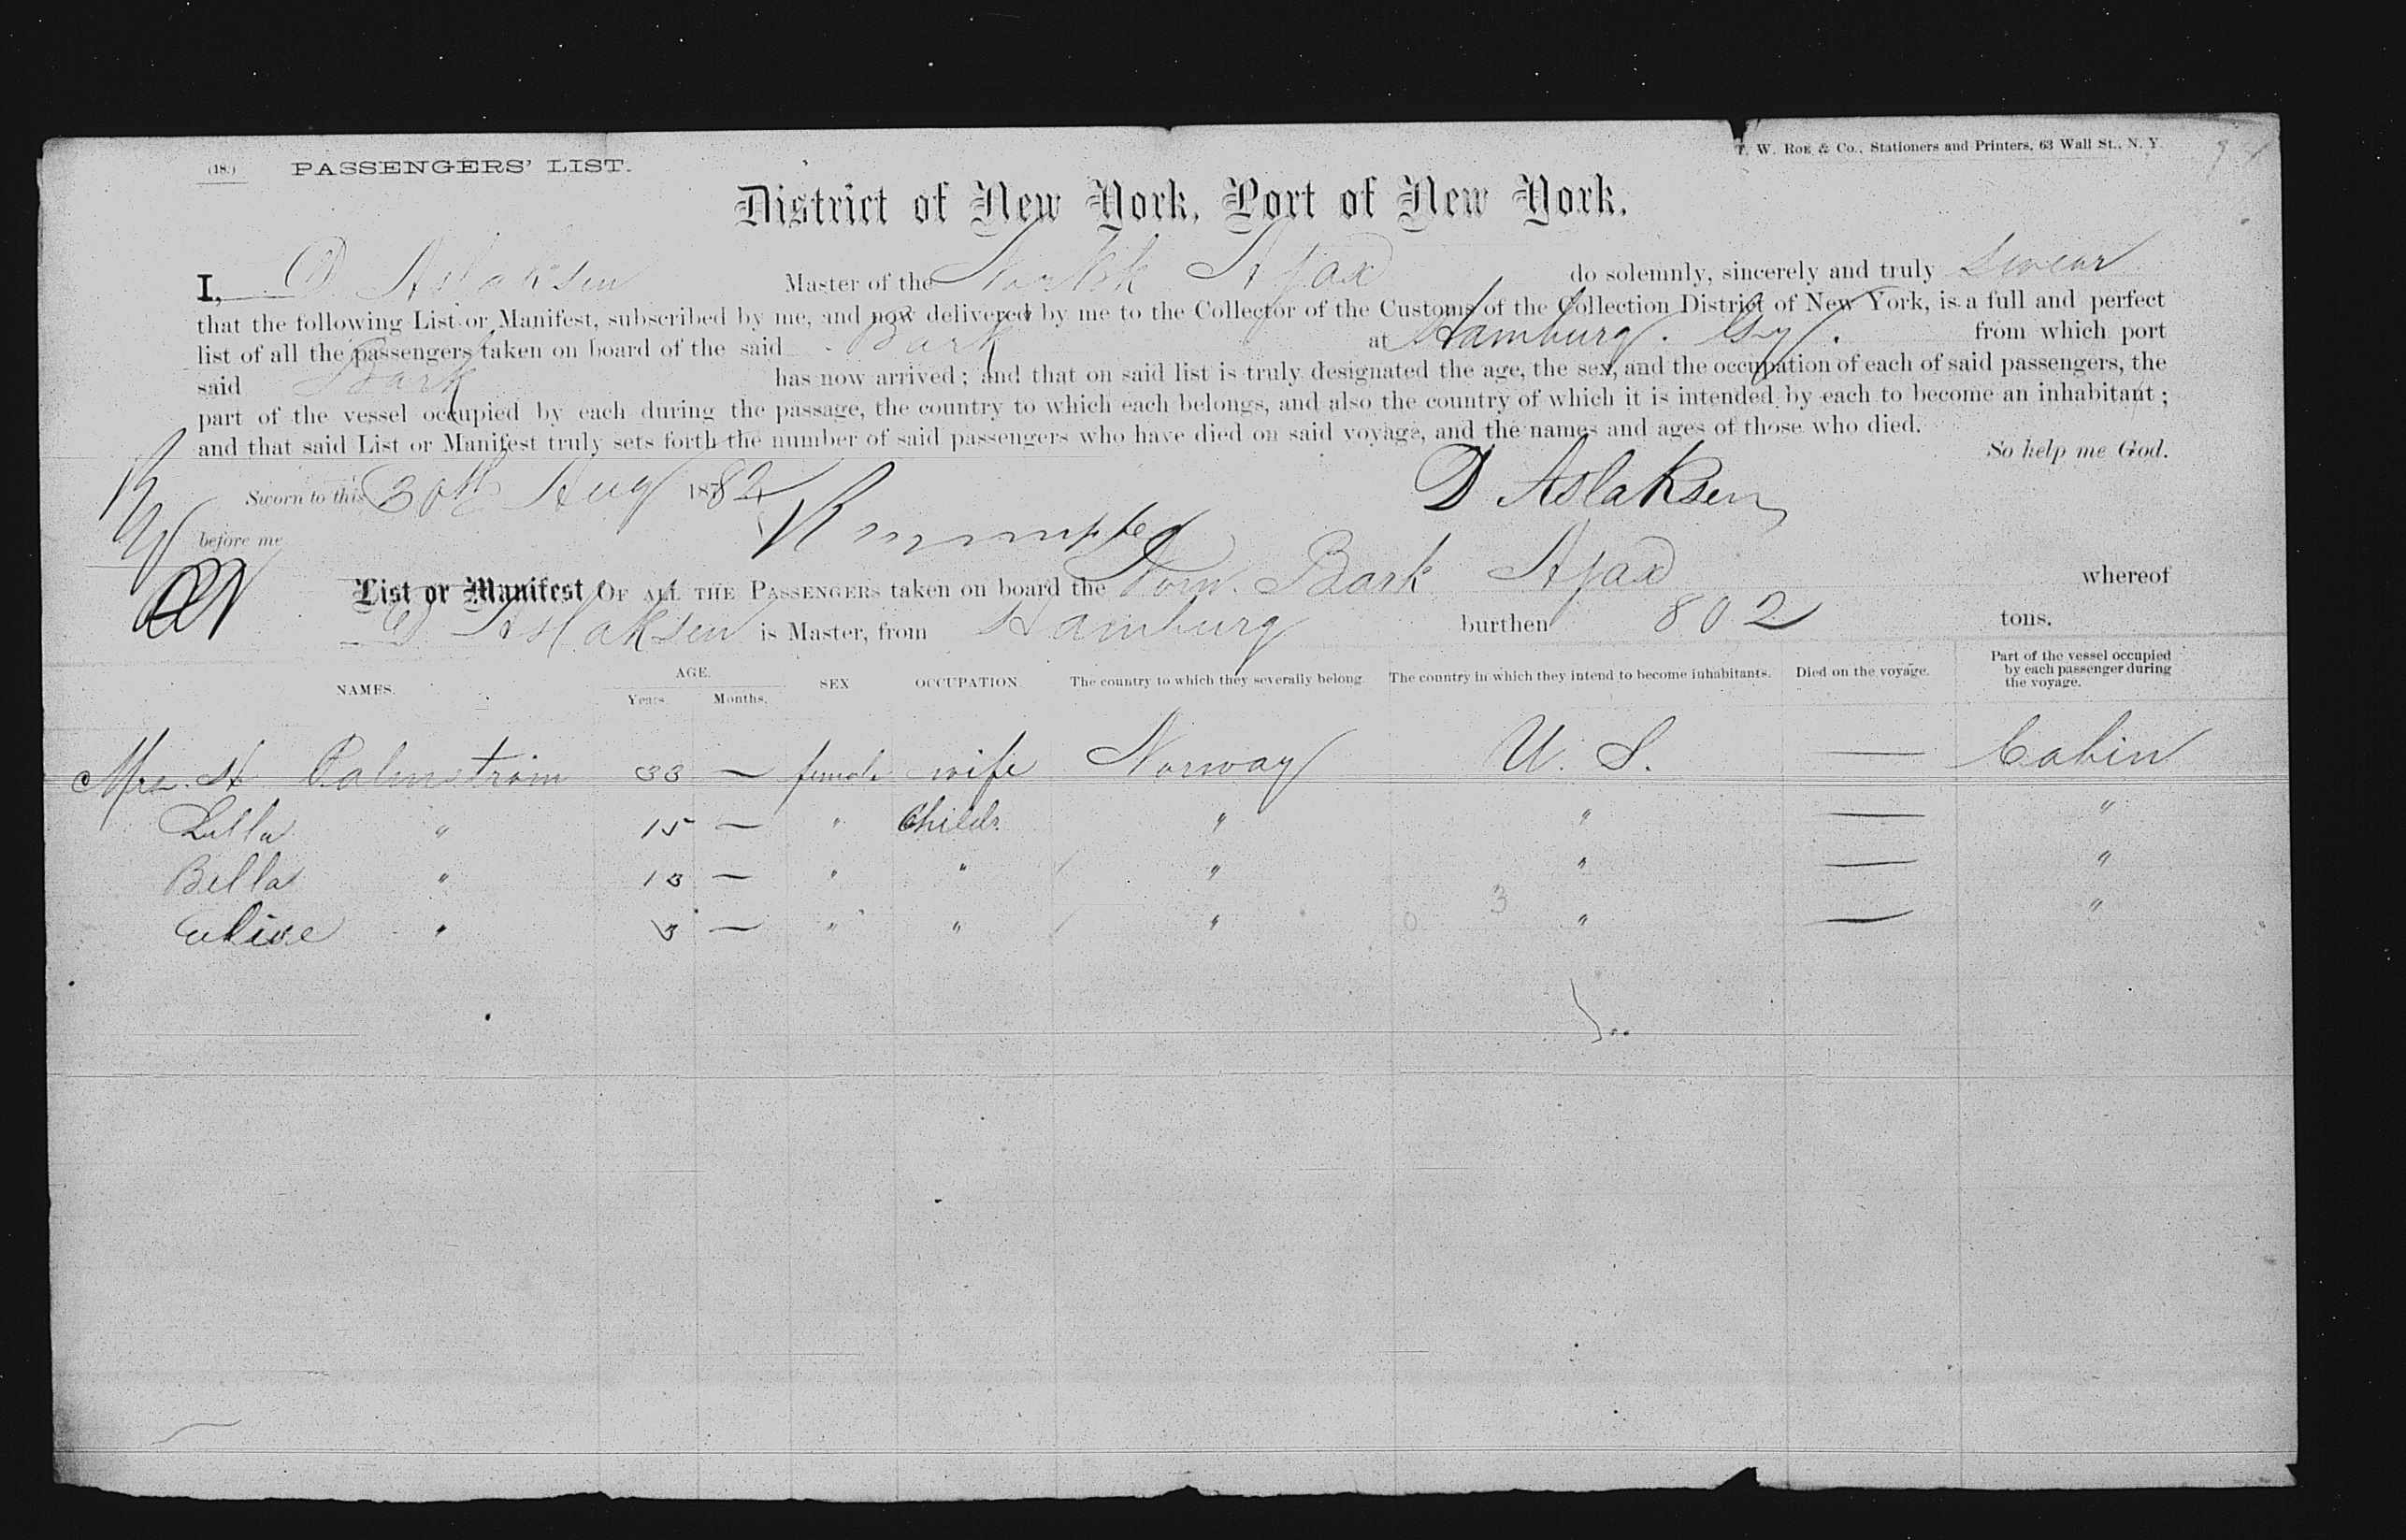 (18.) PASSENGERS' LIST.
T. W. ROE & Co., Stationers and Printers, 63 Wall St., N. Y.
District of New York, Port of New York.
I, D. Aslaksen Master of the Norsk Ajax do solemnly, sincerely and truly swear
that the following List or Manifest, subscribed by me, and now delivered by me to the Collector of the Customs of the Collection District of New York, is a full and perfect
list of all the passengers taken on board of the said Bark at Hamburg. Gy. from which port
said Bark has now arrived; and that on said list is truly designated the age, the sex, and the occupation of each of said passengers, the
part of the vessel occupied by each during the passage, the country to which each belongs, and also the country of which it is intended by each to become an inhabitant;
and that said List or Manifest truly sets forth the number of said passengers who have died on said voyage, and the names and ages of those who died.
So help me God.
Sworn to this 30th Aug 1882
D Aslaksen
before me
List or Manifest OF ALL THE PASSENGERS taken on board the Norw. Bark Ajax whereof
D Aslaksen is Master, from Hamburg burthen 802 tons.
NAMES. AGE. Years. Months. SEX OCCUPATION. The country to which they severally belong. The country in which they intend to become inhabitants. Died on the voyage. Part of the vessel occupied by each passenger during the voyage.
Mrs. H Palmström 33 — female wife Norway U. S. — Cabin
Lilla " 15 — " Childr. " " — "
Bella " 13 — " " " " — "
" 3 — " " " " — "